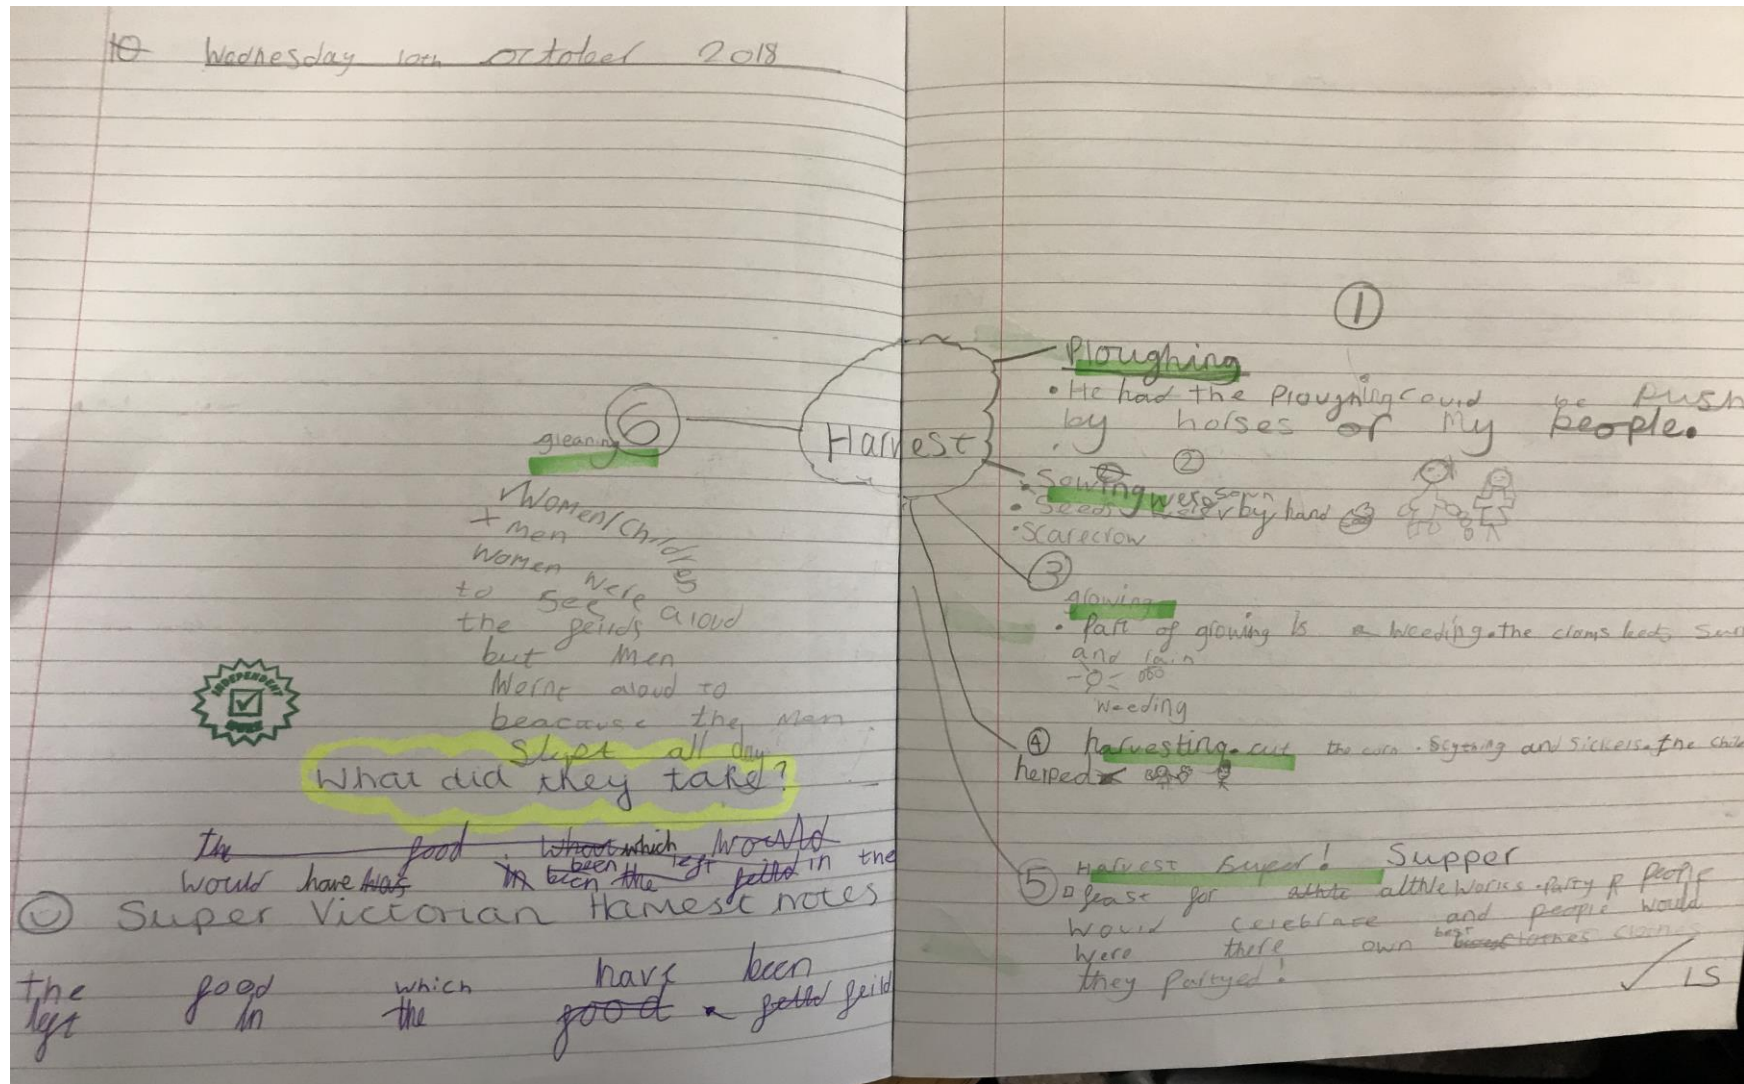 10 Wednesday 10th October 2018
Harvest
6
gleaning
Women/Childres
+ men
Women were
to see aloud
the feilds
but Men
Wernt aloud to
beacause the Men
Slept all day
What did they take?
INDEPENDENT
The food which would
would have been left in the
Super Victorian Harvest notes
the food which have been
left in the food feild
1
Ploughing
• He had the Ploughing Could be push
by horses or My people.
2
Sowing
• Seeds were sown by hand
• Scarecrow
3
growing
• Part of growing is a weeding. the
and rain
weeding
4 harvesting. cut the corn. Scything and Sickers. the chil
helped
5
Harvest Super! Supper
feast for althle works. Party & People
would celebrate and people would
were there own best clothes
they Partyed!
LS